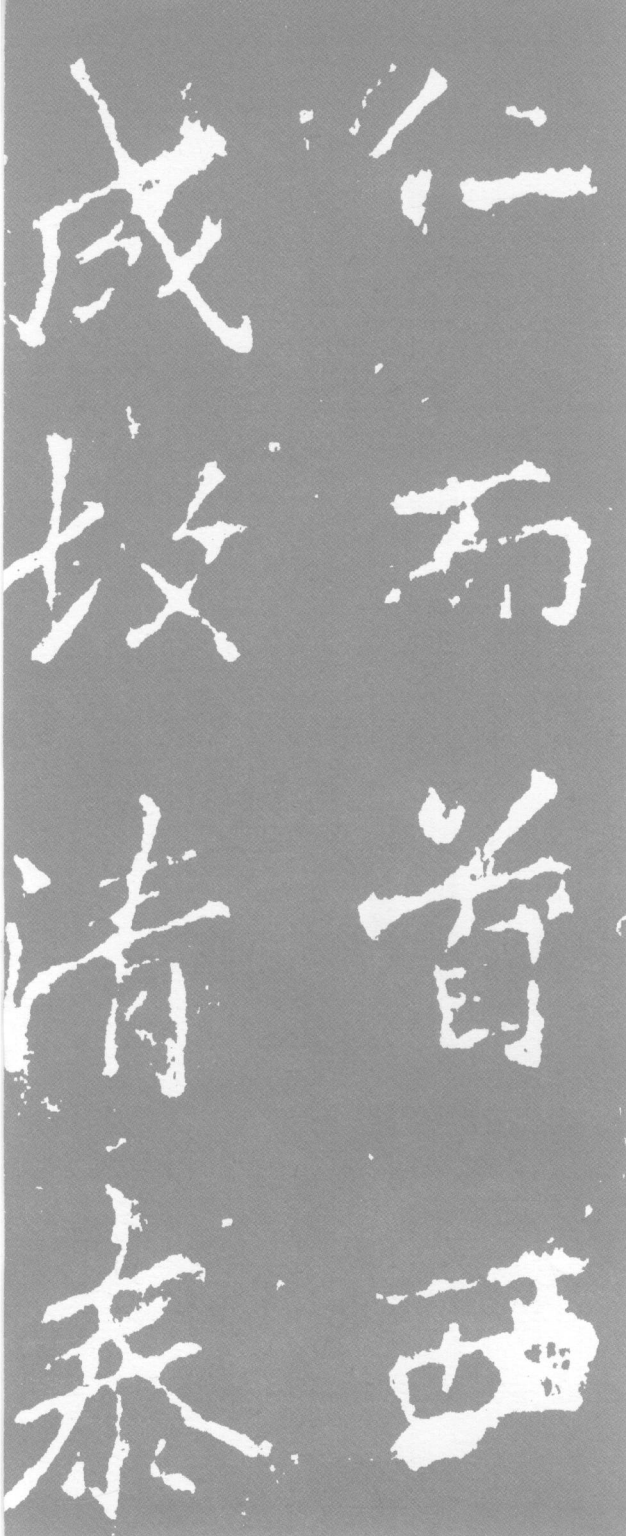 仁而首西
成故清泰